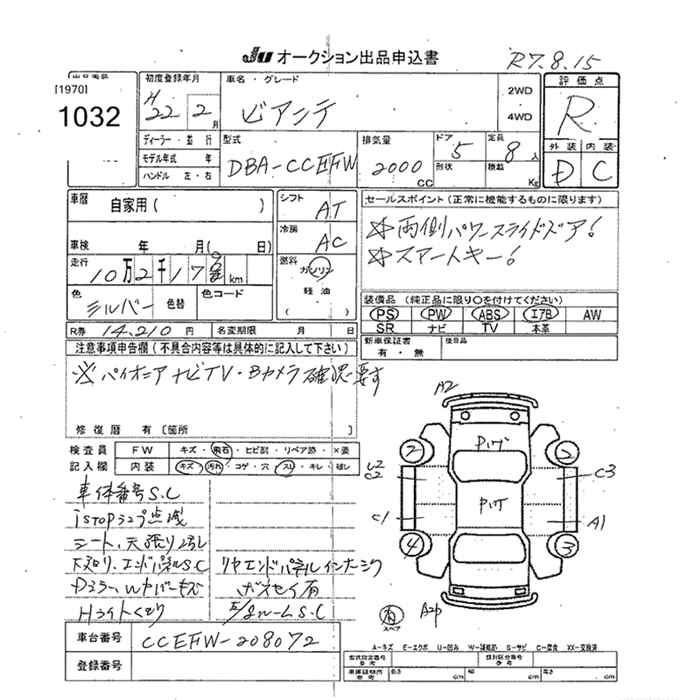 JU オークション出品申込書
R7.8.15
[1970]
1032
初度登録年月
H22 2月
車名・グレード
ビアンテ
2WD
4WD
評価点
R
外装 内装
D C
ディーラー・並行
モデル年式 年
ハンドル 左・右
型式
DBA-CCEFW
排気量
2000 CC
ドア
5
形状
定員
8人
積載 Kg
車歴
自家用( )
車検 年 月( 日)
走行
km
色
シルバー 色替
色コード
シフト
AT
冷房
AC
燃料
ガソリン
軽油
( )
セールスポイント(正常に機能するものに限ります)
☆両側パワースライドドア!
☆スマートキー!
装備品(純正品に限り○を付けてください)
PS PW ABS エアB AW
SR ナビ TV 本革
新車保証書
有・無
後日品
R券 14,210円 名変期限 月 日
注意事項申告欄(不具合内容等は具体的に記入して下さい)
※パイオニアナビTV・Bカメラ確認要す
修復歴 有[箇所
検査員 FW キズ・飛石・ヒビ割・リペア跡・×要
記入欄 内装 キズ・汚れ・コゲ・穴・スレ・キレ・破レ
車体番号S.C
iSTOPランプ点滅
シート、天張り汚レ
下廻り、エンドパネルS.C
リヤエンドパネルインナージク
Dミラー、Wカバーキズ
Hライトくもり
車台番号 CCEFW-208072
登録番号
A2
P凹T
2 2
C2
C3
P凹T
C1
A1
4 3
有
スペア
A2P
A-キズ E-エクボ U-凹み W-補修跡 S-サビ C-腐食 XX-交換済
型式指定番号
類別区分番号
長さ cm 幅 cm 高さ cm